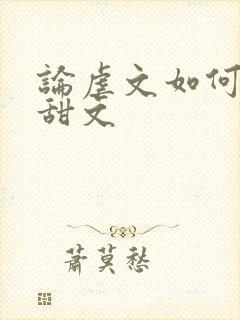 論虐文如何
甜文
蕭莫愁